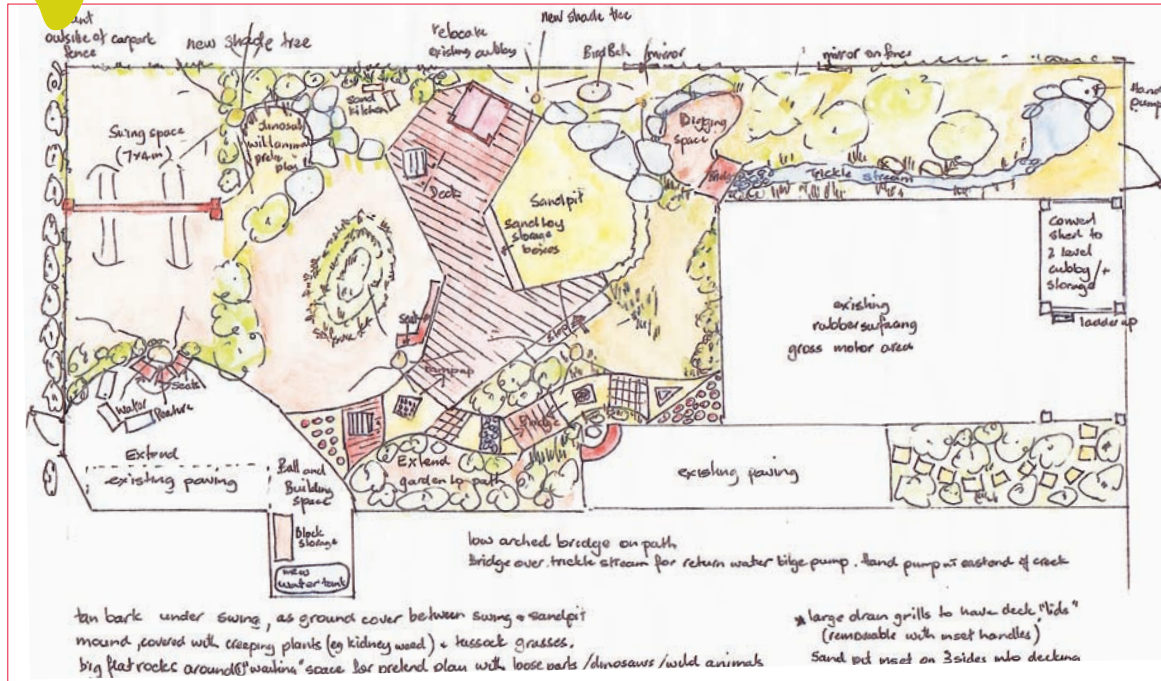 outside of carport
fence
new shade tree
relocate
existing cubby
new shade tree
Bird Bath
mirror
mirror on fence
Hand
pump
Swing space
(7x4m)
sand
kitchen
dinosaur
wild animal
play
Digging
space
Deck
Sandpit
sand toy
storage
boxes
Bridge
Trickle stream
convert
shed to
2 level
cubby/+
storage
ladder up
existing
rubber surfacing
gross motor area
seat
step
ramp up
seats
water
feature
Bridge
Extend
existing paving
Ball and
Building
space
Extend
garden to path
existing paving
Block
storage
new
water tank
low arched bridge on path
bridge over trickle stream for return water bilge pump. Hand pump at east end of creek
tan bark under swing, as ground cover between swing + sandpit
mound, covered with creeping plants (eg kidney weed) + tussock grasses.
big flat rocks around space for pretend play with loose parts/dinosaurs/wild animals
* large drain grills to have deck "lids"
(removable with inset handles)
Sand pit inset on 3 sides into decking